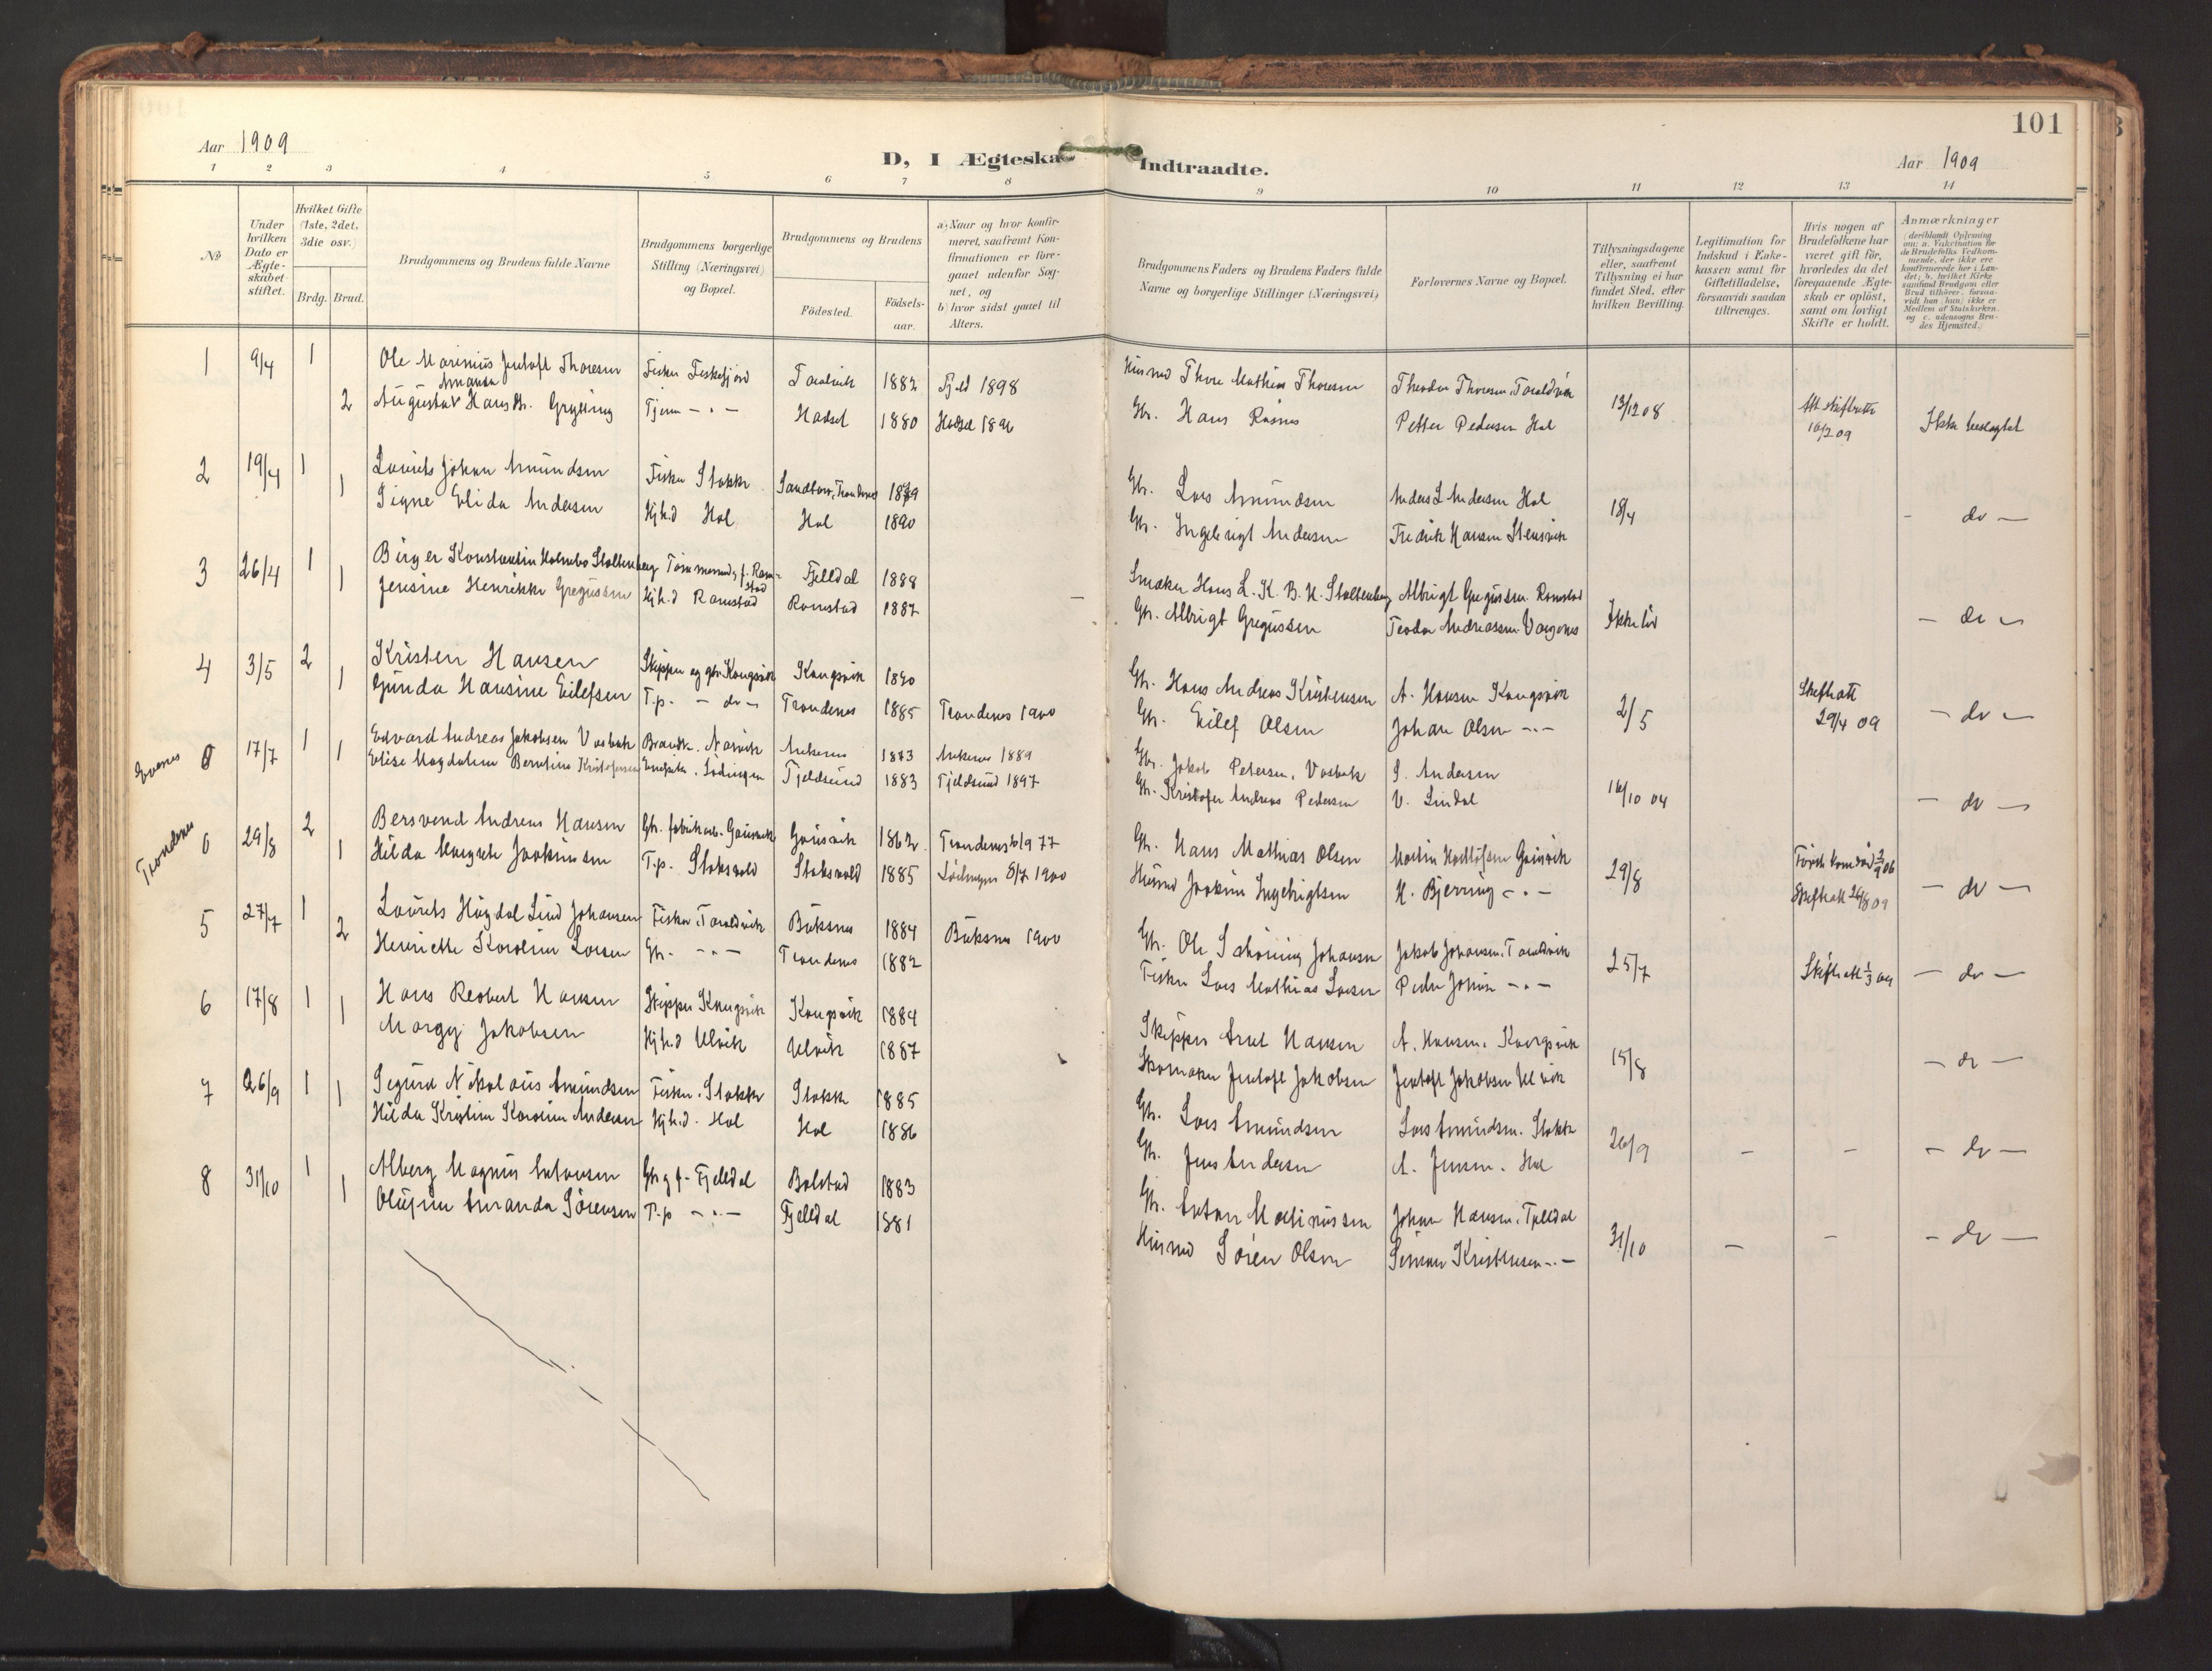 101
Aar 1909
D, I Ægteska
Indtraadte.
Aar 1909
1 2 3 4 5 6 7 8 9 10 11 12 13 14
No
Under hvilken Dato er Ægteskabet stiftet.
Hvilket Gifte (1ste, 2det, 3die osv.)
Brdg. Brud.
Brudgommens og Brudens fulde Navne
Brudgommens borgerlige Stilling (Næringsvei) og Bopæl.
Brudgommens og Brudens
Fødested. Fødselsaar.
a) Naar og hvor konfirmeret, saafremt Konfirmationen er foregaaet udenfor Sognet, og
b) hvor sidst gaaet til Alters.
Brudgommens Faders og Brudens Faders fulde Navne og borgerlige Stillinger (Næringsvei)
Forlovernes Navne og Bopæl.
Tillysningsdagene eller, saafremt Tillysning ei har fundet Sted, efter hvilken Bevilling.
Legitimation for Indskud i Enkekassen samt for Giftetilladelse, forsaavidt saadan tiltrænges.
Hvis nogen af Brudefolkene har været gift før, hvorledes da det foregaaende Ægteskab er opløst, samt om lovligt Skifte er holdt.
Anmærkninger (deriblandt Oplysning om: a. Vakcination for de Brudefolks Vedkommende, der ikke ere konfirmerede her i Landet; b. hvilket Kirkesamfund Brudgom eller Brud tilhører, forsaavidt han (hun) ikke er Medlem af Statskirken, og c. udensogns Brudes Hjemsted.)
1 9/4 1 Ole Marinius Jentoft Thoresen Fisker Fiskefjord Taraldvik 1882 Fjeld 1898 Husmd Thore Mathias Thoresen Theodor Thoresen, Taraldvik
2 Augusta Amanda Hansdtr. Grytting Tjener - " - Hadsel 1880 Hadsel 1896 Gbr. Hans Rasmus Petter Pedersen Hol 13/12 08 Att. skifteatt 16/2 09 Ikke beslægtet
2 19/4 1 Laurits Johan Amundsen Fisker Stokke Sandtorv, Trondenes 1879 Gbr. Lars Amundsen Anders L Andersen Hol
1 Signe Elida Andersen Hjh.d Hol Hol 1890 Gbr. Ingebrigt Andersen Fredrik Hansen Stensvik 18/4 - do -
3 26/4 1 Birger Konstantin Holmbo Stoltenberg Tømmermand, f. Ramstad Fjelldal 1888 Smaker Hans L. K. B. H. Stoltenberg Albrigt Gregussen Ramstad
1 Jensine Henrikke Gregussen Hjh.d Ramstad Ramstad 1887 Gbr. Albrigt Gregussen Teodor Andreassen Vaagenes - do -
4 3/5 2 Kristen Hansen Skipper og gbr. Kongsvik Kongsvik 1840 Gbr. Hans Andreas Kristensen A. Hansen Kongsvik
1 Gunda Hansine Eilefsen T.p. - do - Trondenes 1885 Trondenes 1900 Gbr. Eilef Olsen Johan Olsen - " - 2/5 Skifteatt 29/4 09 - do -
Evenes 0 17/7 1 Edvard Andreas Jakobsen Vasbak Narvik Ankenes 1873 Ankenes 1889 Gbr. Jakob Petersen, Vasbak S. Andersen
1 Elise Magdalene Berntine Kristofersen Lødingen Tjeldsund 1883 Tjeldsund 1897 Gbr. Kristofer Andreas Pedersen V. Lindal 16/10 04 - do -
Trondenes 0 29/8 2 Bersvend Andreas Hansen Gbr. fabrikarb. Gausvik Gausvik 1862 Trondenes 6/9 77 Gbr. Hans Mathias Olsen Martin Gausvik
1 Hilda Margrete Joakimsen T.p. Stoksvold Stoksvold 1885 Lødingen 8/7 1900 Husmd Joakim Ingebrigtsen H. Bjerring - " - 29/8 Skifteatt 26/8 09 - do -
5 27/7 1 Laurits Hagdal Lind Johansen Fisker Taraldvik Buksnes 1884 Buksnes 1900 Gbr. Ole Schøning Johansen Jakob Johansen, Taraldvik
2 Henriette Karoline Larsen Gbr. - " - Trondenes 1882 Fisker Lars Mathias Larsen Peder Johan - " - 25/7 Skifteatt 1/3 09 - do -
6 17/8 1 Hans Reobert Hansen Skipper Kongsvik Kongsvik 1884 Skipper Arnt Hansen A. Hansen, Kongsvik
1 Margy Jakobsen Hjh.d Ulvik Ulvik 1887 Skomaker Jentoft Jakobsen Jentoft Jakobsen Ulvik 15/8 - do -
7 26/9 1 Sigurd Nikolaus Amundsen Fisker. Stokke Stokke 1885 Gbr. Lars Amundsen Lars Amundsen. Stokke
1 Hilda Kristine Karoline Andersen Hjh.d. Hol Hol 1886 Gbr. Jens Andersen A. Jensen. Hol 26/9 - - - do -
8 31/10 1 Alberg Magnus Antonsen Gbr og f. Fjelldal Balstad 1883 Gbr. Anton Martinussen Johan Hansen, Fjelldal
1 Olufine Amanda Sørensen T.p - " - Fjelldal 1881 Husmd Søren Olsen Simon Kristensen - " - 31/10 - - - do -